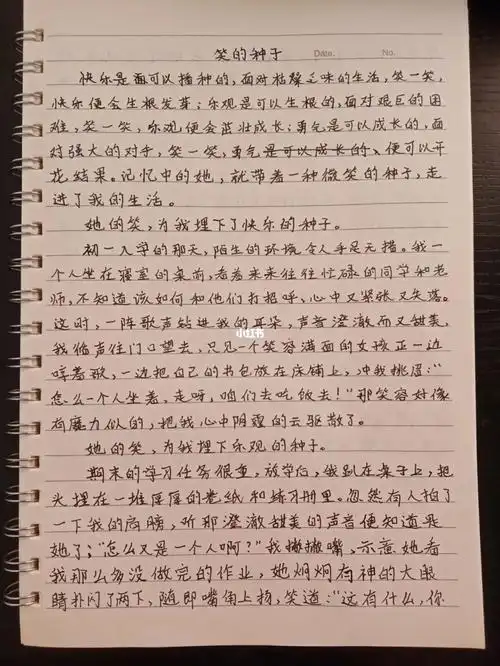 笑的种子
Date. No.
快乐是可以播种的,面对枯燥乏味的生活,笑一笑,
快乐便会生根发芽;乐观是可以生根的,面对艰巨的困
难,笑一笑,乐观便会茁壮成长;勇气是可以成长的,面
对强大的对手,笑一笑,勇气是可以成长的、便可以开
花结果。记忆中的她,就带着一种微笑的种子,走
进了我的生活。
她的笑,为我埋下了快乐的种子。
初一入学的那天,陌生的环境令人手足无措。我一
个人坐在寝室的桌前,看着来来往往忙碌的同学和老
师,不知道该如何和他们打招呼,心中又紧张又失落。
这时,一阵歌声钻进我的耳朵,声音澄澈而又甜美,
我循声往门口望去,只见一个笑容满面的女孩正一边
哼着歌,一边把自己的书包放在床铺上,冲我挑眉:“
怎么一个人坐着,走呀,咱们去吃饭去!”那笑容好像
有魔力似的,把我心中阴霾的云驱散了。
她的笑,为我埋下乐观的种子。
期末的学习任务很重,放学后,我趴在桌子上,把
头埋在一堆厚厚的卷纸和练习册里。忽然有人拍了
一下我的肩膀,听那澄澈甜美的声音便知道是
她了:“怎么又是一个人啊?”我撇撇嘴,示意她看
我那么多没做完的作业,她炯炯有神的大眼
睛扑闪了两下,随即嘴角上扬,笑道:“这有什么,你
小红书